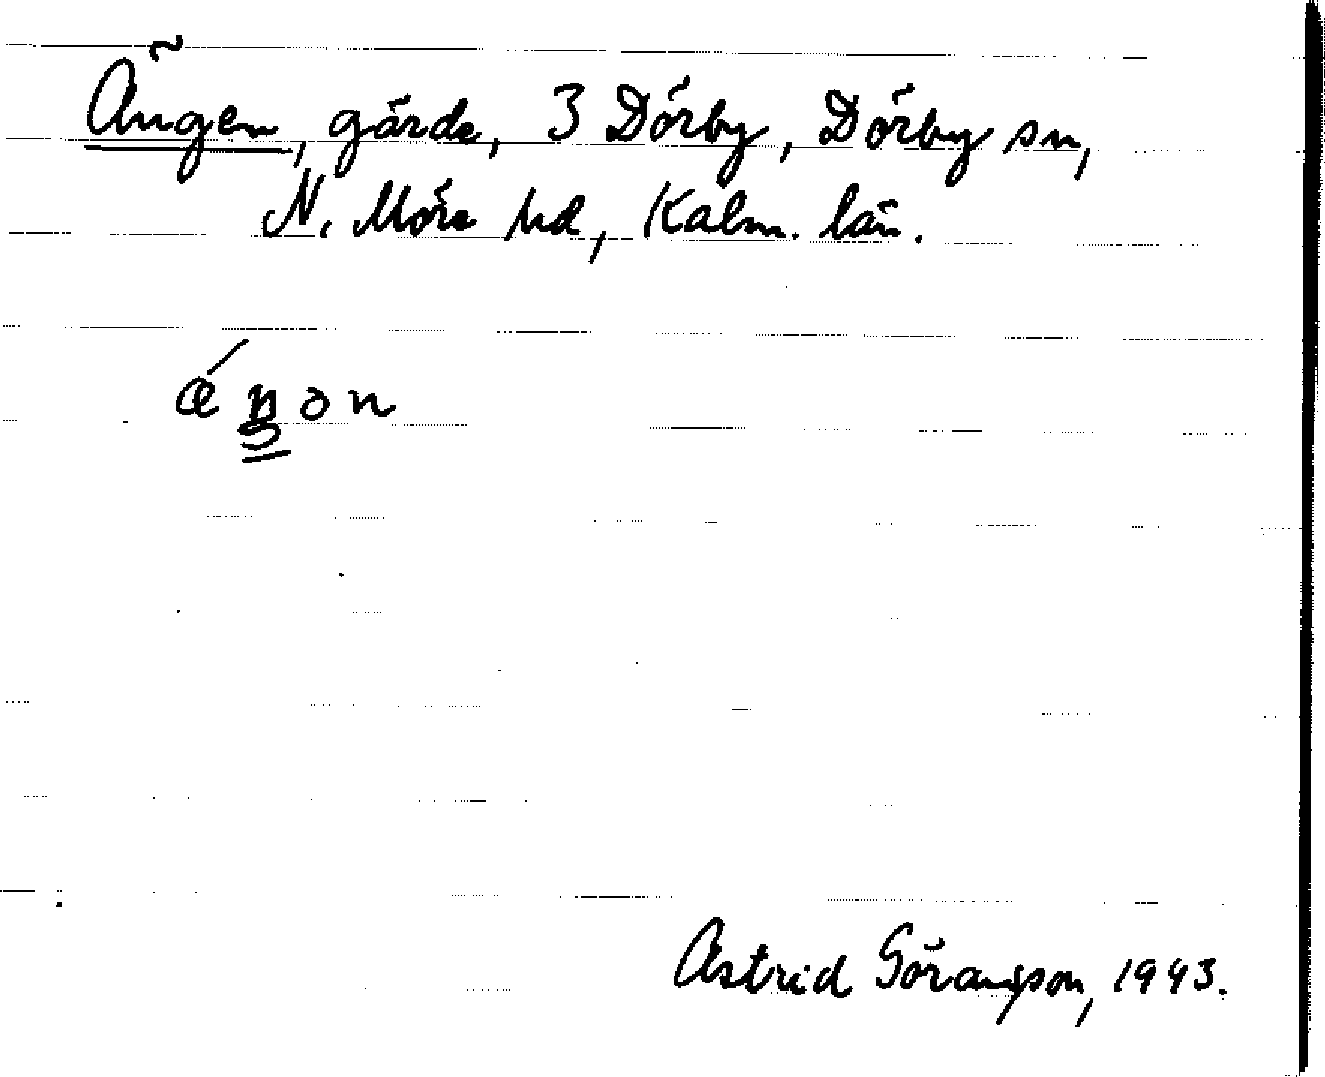 Ängen, gärde, 3 Dörby, Dörby sn,
N. Möre hd, Kalm. län.
ǽŋon
Astrid Göransson, 1943.